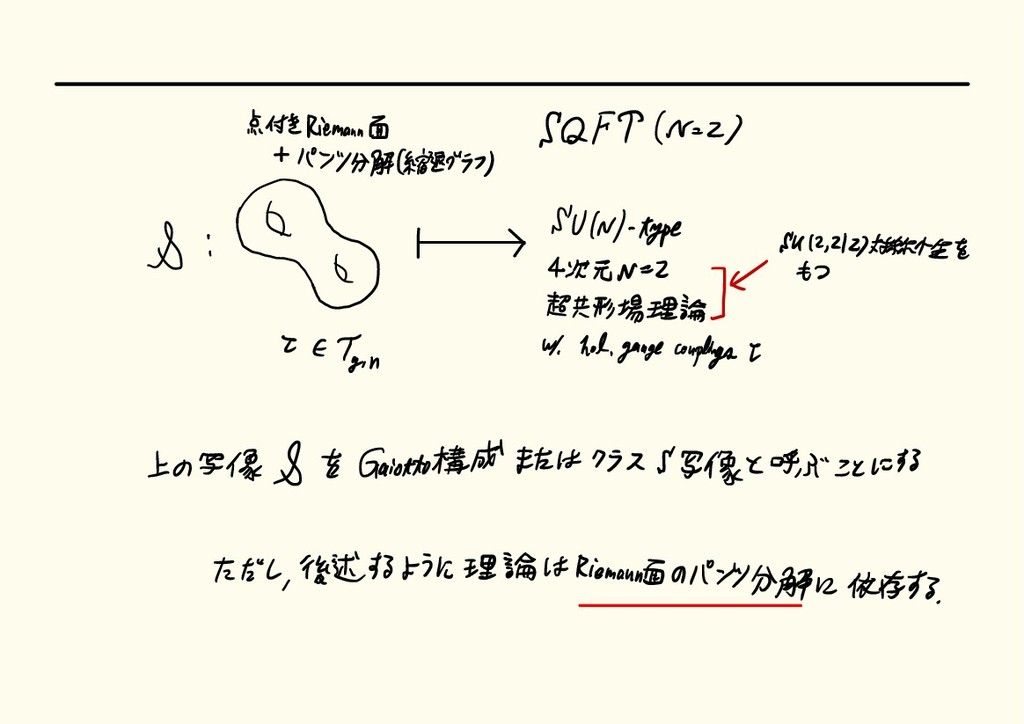 点付きRiemann面
+ パンツ分解(縮退グラフ)
SQFT (N=2)
S :
τ ∈ T_{g,n}
SU(N)-type
4次元 N=2
超共形場理論
w. hol. gauge couplings τ
SU(2,2|2)対称性を
もつ
上の写像 S を Gaiotto構成 または クラスS写像と呼ぶことにする
ただし, 後述するように理論は Riemann面のパンツ分解に依存する.